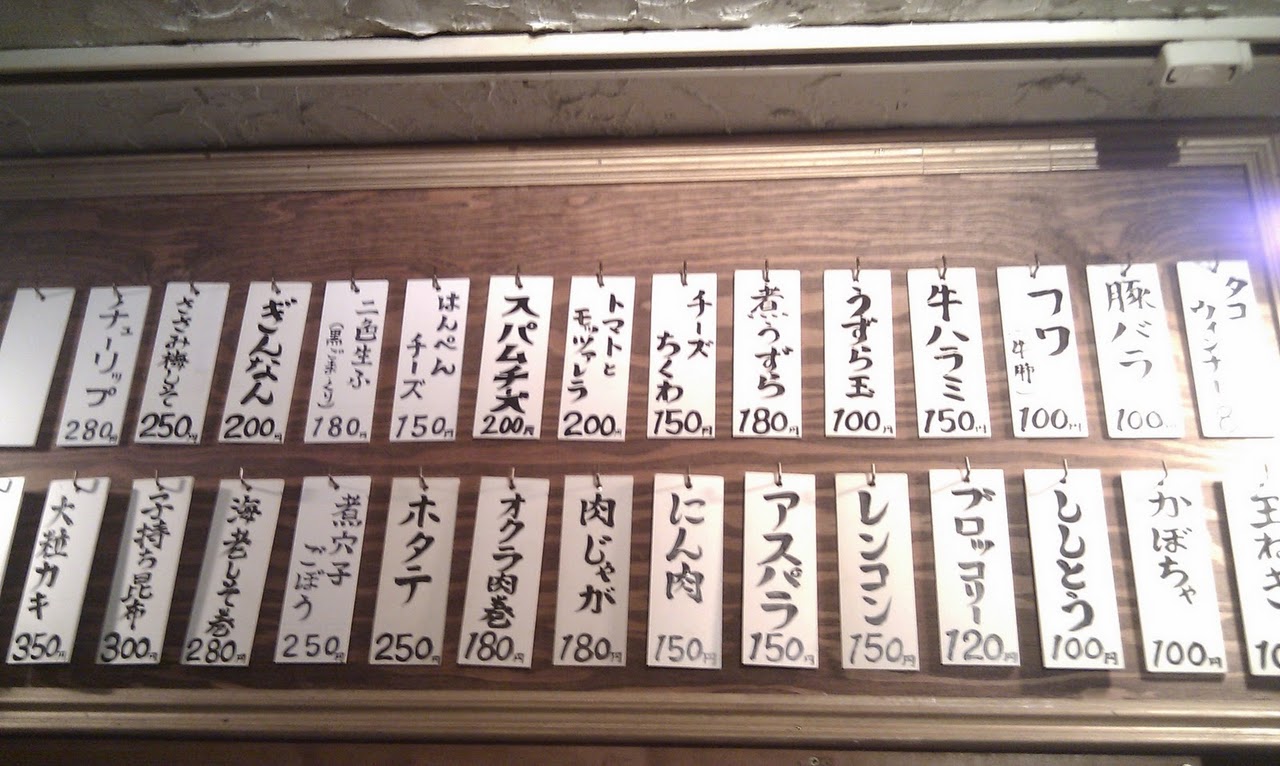 タコ
ウィンナー
豚バラ
100円
フワ
(牛肺)
100円
牛ハラミ
150円
うずら玉
100円
煮うずら
180円
チーズ
ちくわ
150円
トマトと
モッツァレラ
200円
スパムチーズ
200円
はんぺん
チーズ
150円
二色生ふ
180円
ぎんなん
200円
ささみ梅しそ
250円
チューリップ
280円
かぼちゃ
100円
ししとう
100円
ブロッコリー
120円
レンコン
150円
アスパラ
150円
にん肉
150円
肉じゃが
180円
オクラ肉巻
180円
ホタテ
250円
煮穴子
ごぼう
250円
海老しそ巻
280円
子持ち昆布
300円
大粒カキ
350円